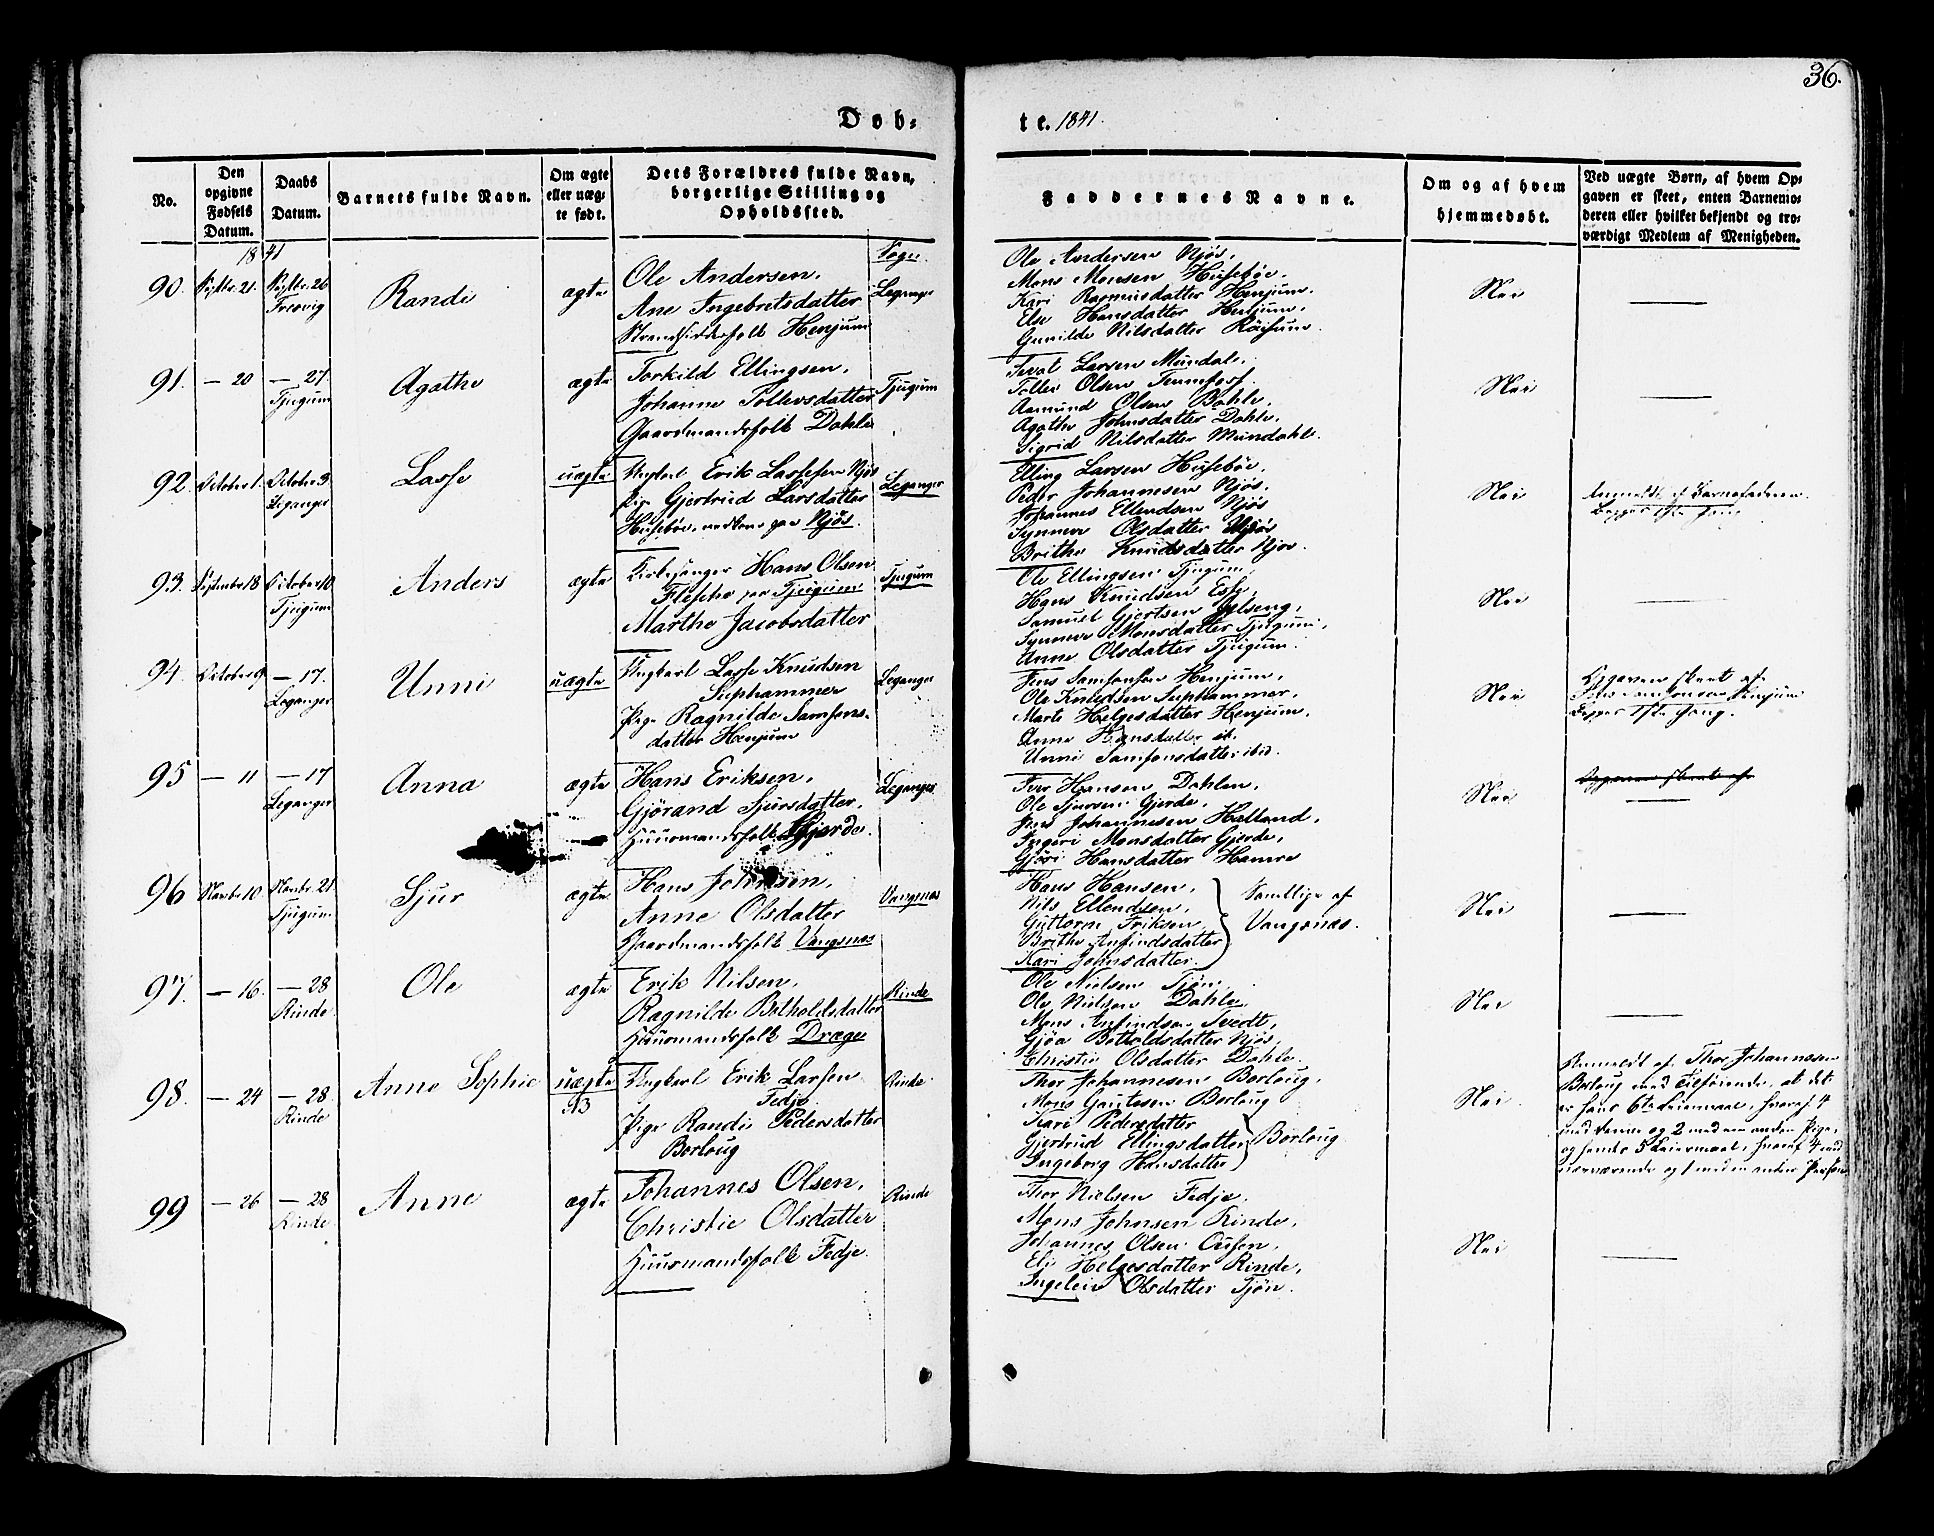 36.
Døb-
te. 1841.
No.
Den opgivne Fødsels Datum.
Daabs Datum.
Barnets fulde Navn.
Om ægte eller uægte født.
Dets Forældres fulde Navn, borgerlige Stilling og Opholdssted.
Faddernes Navne.
Om og af hvem hjemmedøbt.
Ved uægte Børn, af hvem Opgaven er skeet, enten Barnemoderen eller hvilket bekjendt og troværdigt Medlem af Menigheden.
1841
Sogn.
90. Septbr. 21. Septbr. 26
Randi
ægte
Ole Andersen,
Ane Ingebretsdatter
Strandsidderfolk Henjum
Leganger
Ole Andersen Njøs,
Mons Monsen Husebøe,
Kari Rasmusdatter Henjum.
Else Hansdatter Henjum,
Gunilde Nilsdatter Röisum.
Nei
91. — 20 — 27.
Tjugum
Agathe
ægte
Torkild Ellingsen,
Johanne Tollevsdatter
Gaardmandsfolk Dahle
Tjugum
Larsen Mundal,
Olsen
Aamund Olsen Dahle,
Agathe Johnsdatter Dahle,
Sigrid Nilsdatter Mundahl.
Nei
92. October 1. October 3.
Leganger
Lasse
uægte
Ungkarl Erik Lassesen Njøs
Pige Gjertrud Larsdatter
Husebøe, paa Njøs.
Leganger
Elling Larsen Husebøe,
Peder Johannesen Njøs,
Johannes Ellendsen Njøs
Synneve Olsdatter Njøs
Brithe Knudsdatter Njøs.
Nei
Anmeldt af Barnefaderen.
93. September 18 October 10
Tjugum
Anders
ægte
Kirkesanger Hans Olsen
Flesche paa Tjugum
Marthe Jacobsdatter
Tjugum
Ole Ellingsen Tjugum,
Hans Knudsen Ese,
Samuel Gjertsen
Synneve Monsdatter Tjugum,
Anne Olsdatter Tjugum.
Nei
94. October 9. — 17.
Leganger
Unni
uægte
Ungkarl Lasse Knudsen
Suphammer
Pige Ragnilde Samsons-
datter Henjum
Leganger
Jens Samsonsen Henjum,
Ole Knudsen Suphammer,
Marte Helgesdatter Henjum,
Anna Hansdatter
Unni Samsonsdatter ibid.
Nei
Opgaven skeet af
Jens Samsonsen Henjum
Begges 1ste Gang.
95 — 11 — 17
Leganger
Anna
ægte
Hans Eriksen,
Gjørand Sjursdatter,
Huusmandsfolk Gjerde.
Leganger
Iver Hansen Dahlen,
Ole Sjursen Gjerde,
Jens Johannesen Hatland,
Ingeri Monsdatter Gjerde,
Gjøri Hansdatter Hamre
Nei
Opgaven skeet af
96 Novbr. 10 Novbr. 21
Tjugum
Sjur
ægte
Hans Johnsen,
Anne Olsdatter
Gaardmandsfolk Vangsnæs
Vangsnæs
Hans Hansen,
Nils Ellendsen,
Guttorm Eriksen,
Brithe Anfindsdatter
Kari Johnsdatter.
Samtlige af
Vangsnæs.
Nei
97. — 16. — 28
Rinde
Ole
ægte
Erik Nilsen,
Ragnilde Botholdsdatter
Huusmandsfolk Dræge
Rinde
Ole Nielsen Tjøn,
Ole Nielsen Dahle,
Mons Anfindsen Tvedt,
Gjøa Botholdsdatter Njøs,
Christie Olsdatter Dahle.
Nei
98. — 24 — 28
Rinde
Anne Sophie
uægte
Ungkarl Erik Larsen
Fedje
Pige Randi Pedersdatter
Borloug
Rinde
Thor Johannesen Borloug,
Mons Gautesen Borloug
Kari Pedersdatter
Gjertrud Ellingsdatter
Ingeborg Hansdatter
Borloug
Nei.
Anmeldt af Thor Johannesen
Borloug med Tilføiende, at det
er hans 6te Leiermaal, hvoraf 4
med denne og 2 med en anden Pige,
og hendes 5 Leiermaal, hvoraf 4 med
nærværende og 1 med en anden Person
99 — 26 — 28
Rinde
Anne
ægte
Johannes Olsen,
Christie Olsdatter
Huusmandsfolk Fedje.
Rinde
Thor Nielsen Fedje,
Mons Johnsen Rinde,
Johannes Olsen
Eli Helgesdatter Rinde,
Ingeleiv Olsdatter Tjøn.
Nei